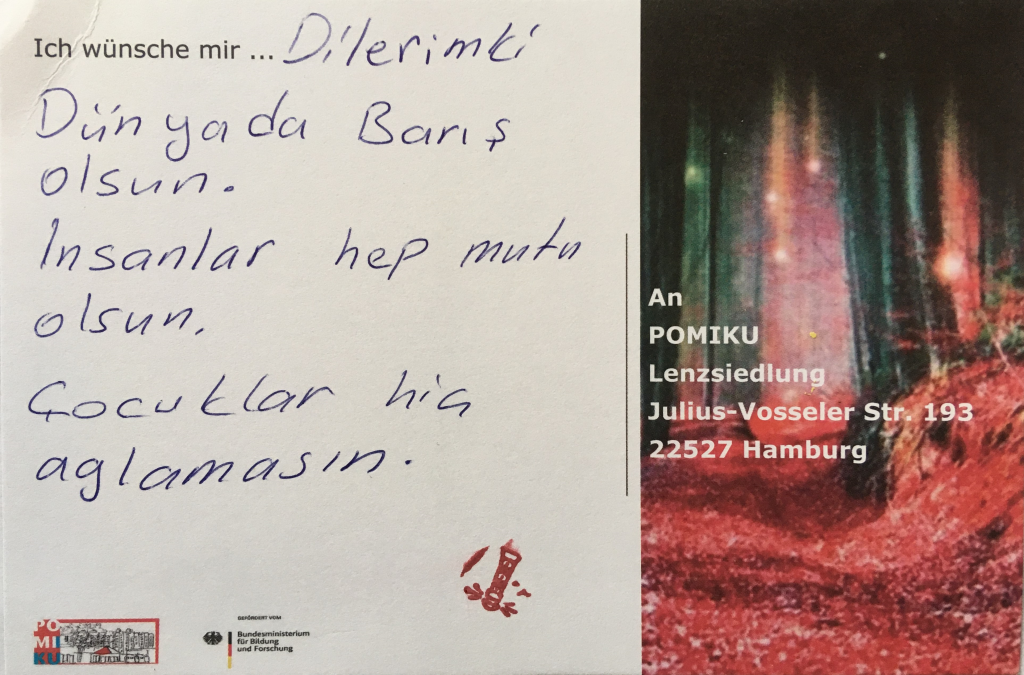 Ich wünsche mir ... Dilerimki
Dünyada Barış
olsun.
Insanlar hep mutu
olsun.
Çocuklar hiç
aglamasın.
An
POMIKU
Lenzsiedlung
Julius-Vosseler Str. 193
22527 Hamburg
PO
MI
KU
GEFÖRDERT VOM
Bundesministerium
für Bildung
und Forschung